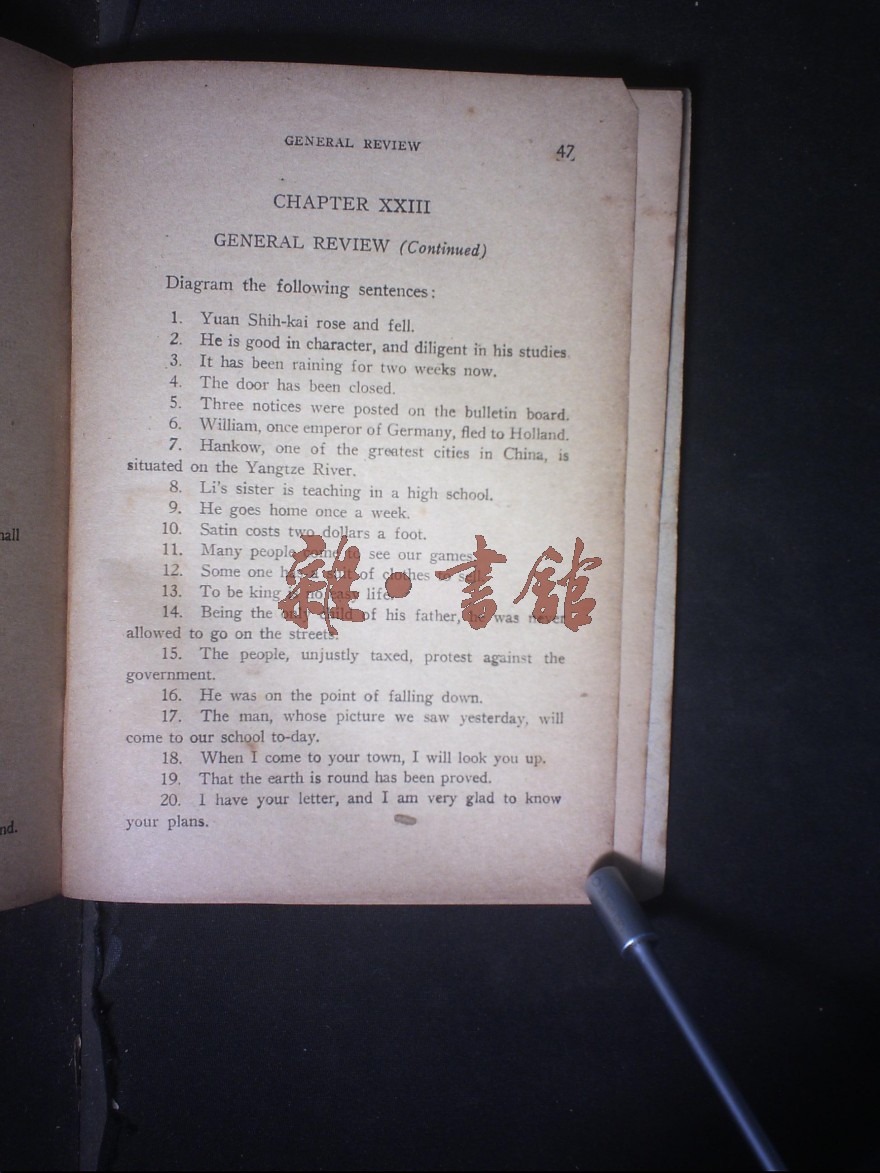 GENERAL REVIEW 47
CHAPTER XXIII
GENERAL REVIEW (Continued)
Diagram the following sentences:
1. Yuan Shih-kai rose and fell.
2. He is good in character, and diligent in his studies.
3. It has been raining for two weeks now.
4. The door has been closed.
5. Three notices were posted on the bulletin board.
6. William, once emperor of Germany, fled to Holland.
7. Hankow, one of the greatest cities in China, is
situated on the Yangtze River.
8. Li's sister is teaching in a high school.
9. He goes home once a week.
10. Satin costs two dollars a foot.
11. Many people come to see our games.
12. Some one has a suit of clothes to sell.
13. To be king is no easy life.
14. Being the only child of his father, he was never
allowed to go on the streets.
15. The people, unjustly taxed, protest against the
government.
16. He was on the point of falling down.
17. The man, whose picture we saw yesterday, will
come to our school to-day.
18. When I come to your town, I will look you up.
19. That the earth is round has been proved.
20. I have your letter, and I am very glad to know
your plans.
雜·書館